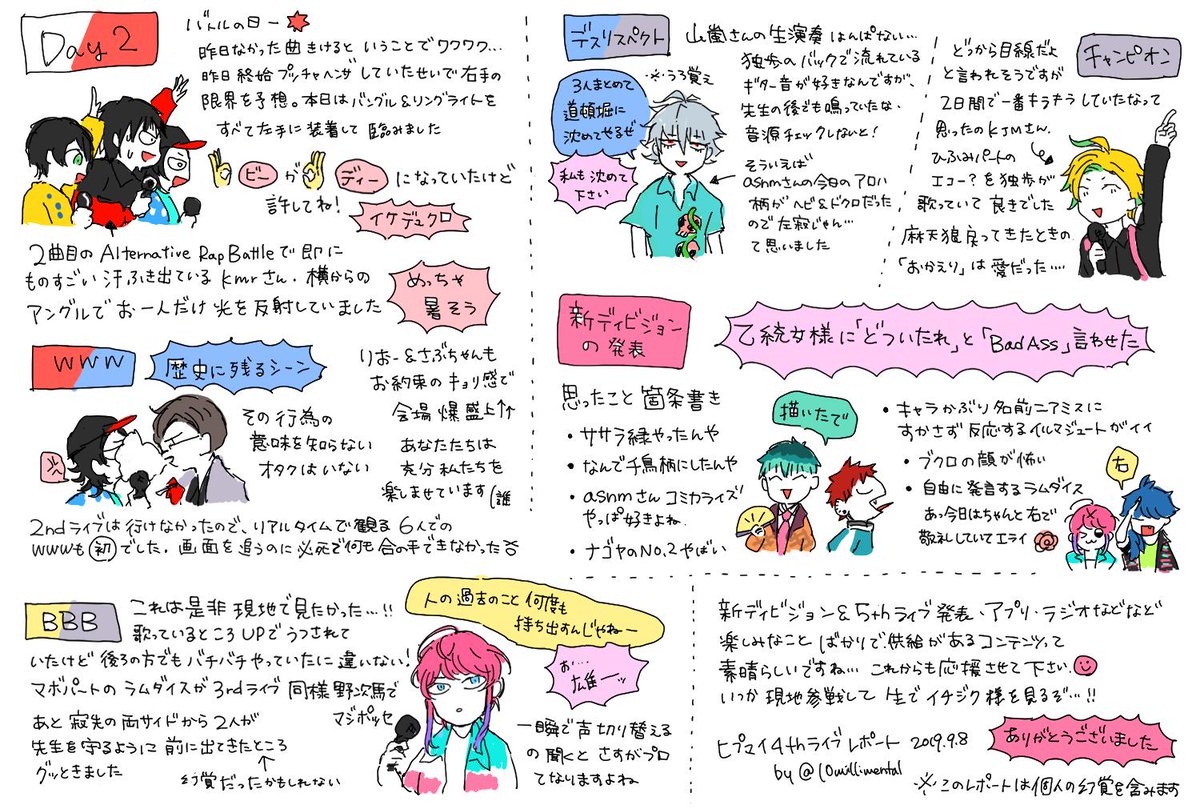 Day 2
バトルの日ー
昨日なかった曲きけるということでワクワク...
昨日終始プッチャヘンザしていたせいで右手の
限界を予想。本日はバングル&リングライトを
すべて左手に装着して臨みました
ビーが ディーになっていたけど
許してね!
イケデュクロ
2曲目のAlternative Rap Battleで即に
ものすごい汗ふき出ているkmrさん。横からの
アングルでお一人だけ光を反射していました
めっちゃ
暑そう
WWW
歴史に残るシーン
りおー&さぶちゃんも
お約束のキョリ感で
会場爆盛上↑↑
その行為の
意味を知らない
オタクはいない
あなたたちは
充分私たちを
楽しませています(誰
2ndライブは行けなかったので、リアルタイムで観る6人での
WWWも初でした。画面を追うのに必死で何も合の手できなかった
BBB
これは是非現地で見たかった...!!
歌っているところUPでうつされて
いたけど後ろの方でもバチバチやっていたに違いない!
マボパートのラムダイスが3rdライブ同様野次馬で
マジポッセ
あと寂先の両サイドから2人が
先生を守るように前に出てきたところ
グッときました
幻覚だったかもしれない
人の過去のこと何度も
持ち出すんじゃねー
お...
雄ーッ
一瞬で声切り替える
の聞くとさすがプロ
てなりますよね
デスリスペクト
山嵐さんの生演奏はんぱない...
※うろ覚え
3人まとめて
道頓堀に
沈めてやるぜ
私も沈めて
下さい
独歩のバックで流れている
ギター音が好きなんですが、
先生の後でも鳴っていたな、
音源チェックしないと!
そういえば
asnmさんの今日のアロハ
柄がヘビ&ドクロだった
ので左寂じゃん...
て思いました
チャンピオン
どっから目線だよ
と言われそうですが
2日間で一番キラキラしていたなって
思ったのKJMさん。
ひふみパートの
エコー?を独歩が
歌っていて良きでした
麻天狼戻ってきたときの
「おかえり」は愛だった....
新ディビジョン
の発表
乙統女様に「どついたれ」と「Bad Ass」言わせた
思ったこと箇条書き
・ササラ緑やったんや
・なんで千鳥柄にしたんや
・asnmさんコミカライズ
やっぱ好きよね
・ナゴヤのNo.2やばい
描いたで
・キャラかぶり名前ニアミスに
すかさず反応するイルマジュートがイイ
・ブクロの顔が怖い
・自由に発言するラムダイス
あっ今日はちゃんと右で
敬礼していてエライ
右
新ディビジョン&5thライブ発表、アプリ・ラジオなどなど
楽しみなことばかりで、供給があるコンテンツって
素晴らしいですね... これからも応援させて下さい
いつか現地参戦して生でイチジク様を見るぞ...!!
ヒプマイ4thライブレポート 2019.9.8
by @10millimental
ありがとうございました
※このレポートは個人の幻覚を含みます